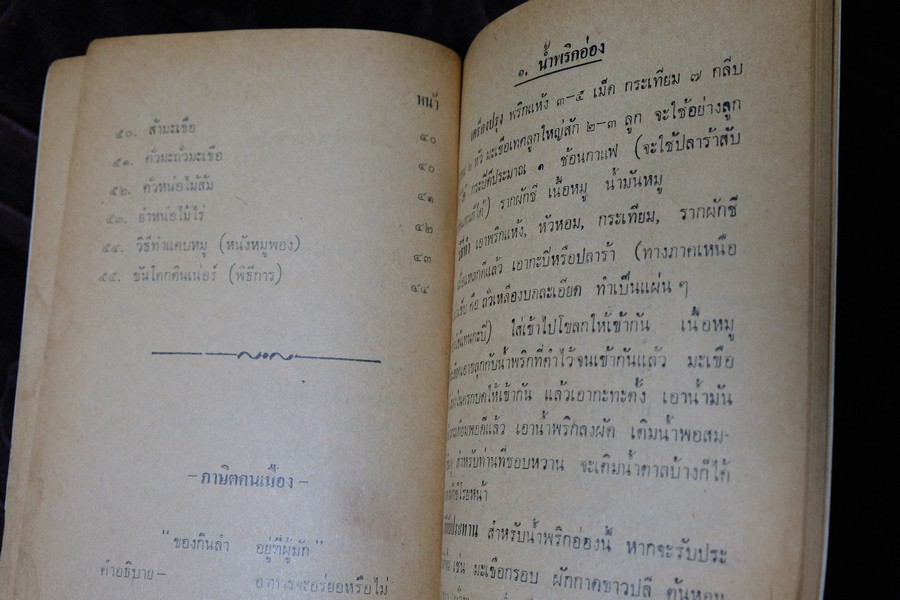 หน้า
๕๐. ส้ามะเขือ ๔๐
๕๑. คั่วมะถั่วมะเขือ ๔๐
๕๒. คั่วหน่อไม้ส้ม ๔๑
๕๓. ยำหน่อไม้ไร่ ๔๒
๕๔. วิธีทำแคบหมู (หนังหมูพอง) ๔๓
๕๕. ขันโตกดินเน่อร์ (พิธีการ) ๔๔
–ภาษิตคนเมือง–
"ของกินลำ อยู่ที่ผู้มัก"
คำอธิบาย– อาหารจะอร่อยหรือไม่
๑. น้ำพริกอ่อง
เครื่องปรุง พริกแห้ง ๓–๕ เม็ด กระเทียม ๗ กลีบ
๒ หัว มะเขือเทศลูกใหญ่สัก ๒–๓ ลูก จะใช้อย่างลูก
กะปิดีประมาณ ๑ ช้อนกาแฟ (จะใช้ปลาร้าสับ
รากผักชี เนื้อหมู น้ำมันหมู
วิธีทำ เอาพริกแห้ง, หัวหอม, กระเทียม, รากผักชี
แหลกดีแล้ว เอากะปิหรือปลาร้า (ทางภาคเหนือ
คือ ถั่วเหลืองบดละเอียด ทำเป็นแผ่น ๆ
แทนกะปิ) ใส่เข้าไปโขลกให้เข้ากัน เนื้อหมู
เอาคลุกกับน้ำพริกที่ตำไว้จนเข้ากันแล้ว มะเขือ
ในครกบดให้เข้ากัน แล้วเอากะทะตั้ง เอาน้ำมัน
กระเทียมพอดีแล้ว เอาน้ำพริกลงผัด เติมน้ำพอสม-
สำหรับท่านที่ชอบหวาน จะเติมน้ำตาลบ้างก็ได้
โรยหน้า
สำหรับน้ำพริกอ่องนี้ หากจะรับประ
เช่น มะเขือกรอบ ผักกาดขาวปลี ต้นหอม